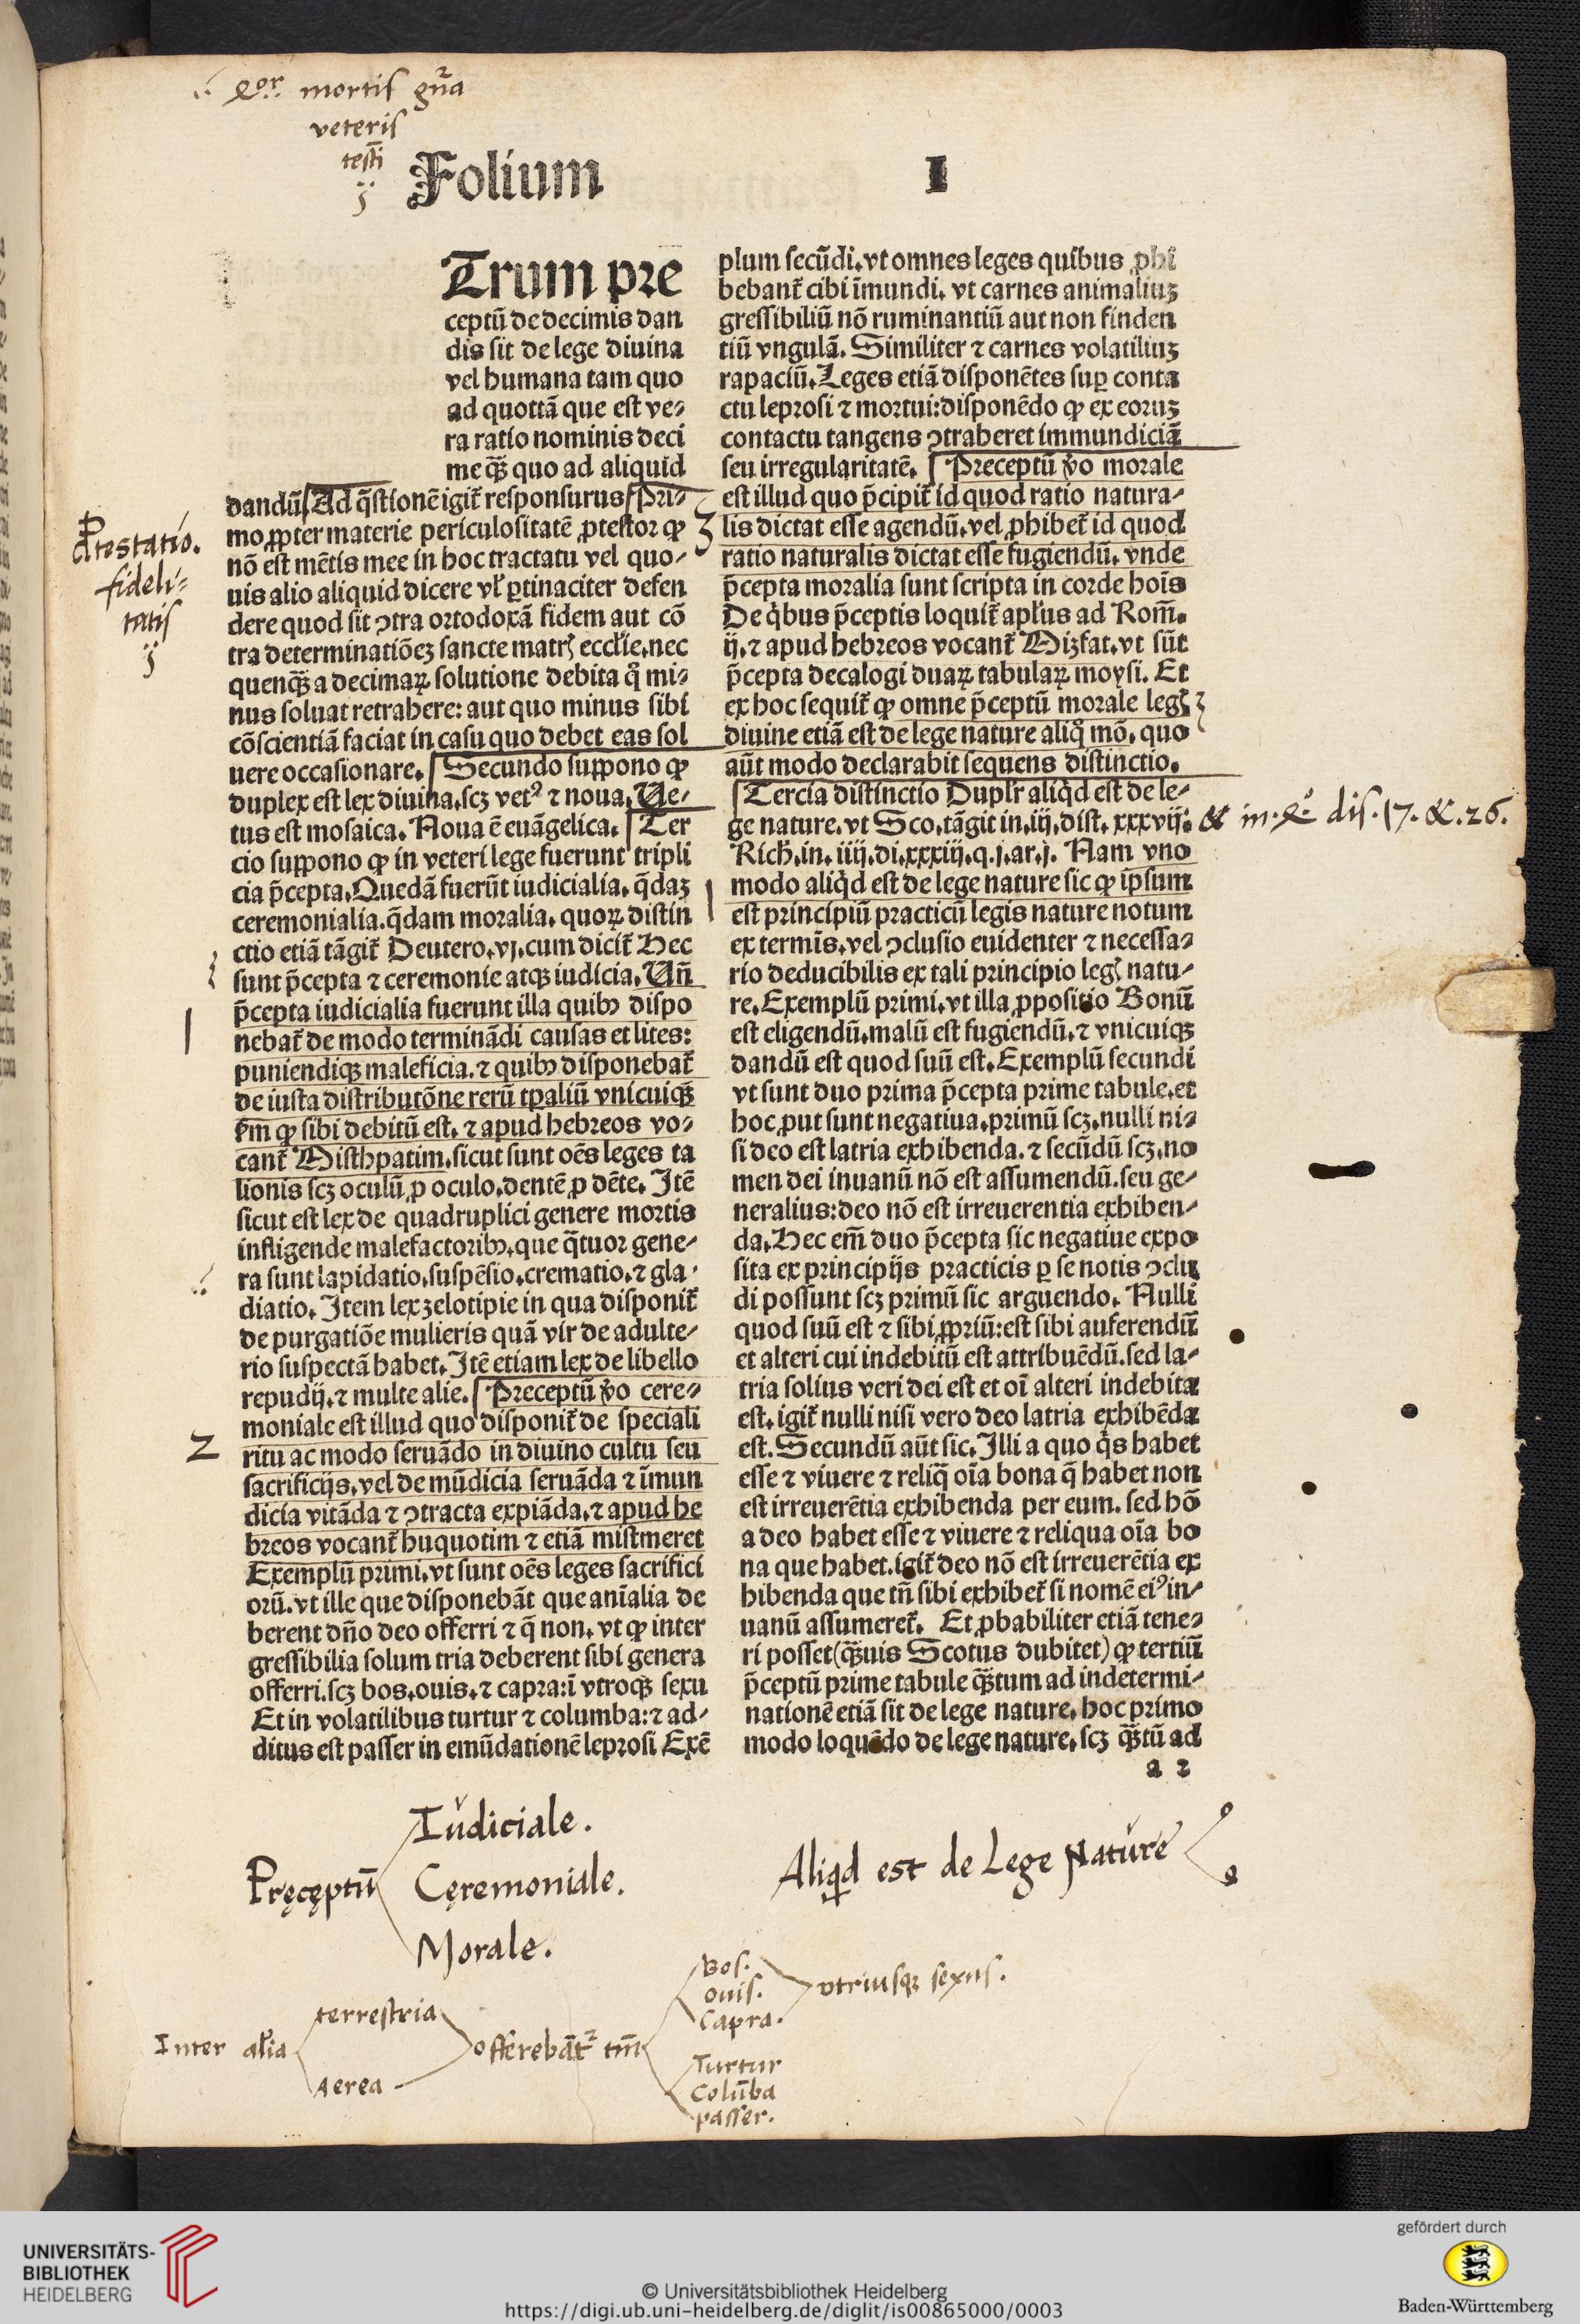 mortis gn̄a
veteris
testī
Folium I
Trum pre
ceptū de decimis dan
dis sit de lege diuina
vel humana tam quo
ad quottā que est ve⸗
ra ratio nominis deci
me qȝ̄ quo ad aliquid
dandū Ad q̄stionē igit̄ responsurus Pri⸗
mo ꝓpter materie periculositatē ꝓtestor ꝙ
nō est mētis mee in hoc tractatu vel quo⸗
uis alio aliquid dicere vl̓ ꝑtinaciter defen
dere quod sit ꝯtra ortodoxā fidem aut cō
tra determinatiōeȝ sancte matrꝭ eccl̓ie, nec
quenqȝ̄ a decimaꝝ solutione debita qͦ mi⸗
nus soluat retrahere: aut quo minus sibi
cōscientiā faciat in casu quo debet eas sol
uere occasionare. Secundo suppono ꝙ
duplex est lex diuina, scȝ vetꝰ ⁊ noua. Ue⸗
tus est mosaica. Noua ē euāgelica. Ter
cio suppono ꝙ in veteri lege fuerunt tripli
cia p̄cepta. Quedā fuerūt iudicialia. q̄daȝ
ceremonialia. q̄dam moralia. quoꝝ distin
ctio etiā tāgit̄ Deutero. vj. cum dicit̄ Hec
sunt p̄cepta ⁊ ceremonie atqȝ iudicia. Un̄
p̄cepta iudicialia fuerunt illa quibꝰ dispo
nebat̄ de modo terminādi causas et lites:
puniendiqȝ maleficia. ⁊ quibꝰ disponebat̄
de iusta distributōne rerū tꝑaliū vnicuiqȝ
ẜm ꝙ sibi debitū est. ⁊ apud hebreos vo⸗
cant̄ Misthpatim. sicut sunt oēs leges ta
lionis scȝ oculū ꝓ oculo. dentē ꝓ dēte. Itē
sicut est lex de quadruplici genere mortis
infligende malefactoribꝰ. que q̄tuor gene⸗
ra sunt lapidatio, suspēsio, crematio, ⁊ gla⸗
diatio. Item lex zelotipie in qua disponit̄
de purgatiōe mulieris quā vir de adulte⸗
rio suspectā habet. Itē etiam lex de libello
repudij, ⁊ multe alie. Preceptū v̄o cere⸗
moniale est illud quo disponit̄ de speciali
ritu ac modo seruādo in diuino cultu seu
sacrificijs. vel de mūdicia seruāda ⁊ īmun
dicia vitāda ⁊ ꝯtracta expiāda. ⁊ apud he
breos vocant̄ huquotim ⁊ etiā mistmeret
Exemplū primi. vt sunt oēs leges sacrifici
orū. vt ille que disponebāt que aīalia de
berent dn̄o deo offerri ⁊ q̄ non. vt ꝙ inter
gressibilia solum tria deberent sibi genera
offerri. scȝ bos, ouis, ⁊ capra: ī vtroqȝ sexu
Et in volatilibus turtur ⁊ columba: ⁊ ad⸗
ditus est passer in emūdationē leprosi Exē
plum secūdi. vt omnes leges quibus ꝓhi
bebant̄ cibi īmundi. vt carnes animaliuȝ
gressibiliū nō ruminantiū aut non finden
tiū vngulā. Similiter ⁊ carnes volatiliuȝ
rapaciū. Leges etiā disponētes suꝑ conta
ctu leprosi ⁊ mortui: disponēdo ꝙ ex eoruȝ
contactu tangens ꝯtraheret immundiciā
seu irregularitatē. Preceptū v̄o morale
est illud quo p̄cipit̄ id quod ratio natura⸗
lis dictat esse agendū. vel ꝓhibet̄ id quod
ratio naturalis dictat esse fugiendū. vnde
p̄cepta moralia sunt scripta in corde hoīs
De qͥbus p̄ceptis loquit̄ apl̓us ad Rom̄.
ij. ⁊ apud hebreos vocant̄ Mizfat. vt sūt
p̄cepta decalogi duaꝝ tabulaꝝ moysi. Et
ex hoc sequit̄ ꝙ omne p̄ceptū morale legꝭ
diuine etiā est de lege nature aliqͦ mō. quo
aūt modo declarabit sequens distinctio.
Tercia distinctio Dupl̓r aliqͥd est de le⸗
ge nature. vt Sco. tāgit in. iij. dist. xxxvij.
Rich. in. iiij. di. xxxiij. q. j. ar. j. Nam vno
modo aliqͥd est de lege nature sic ꝙ ip̄sum
est principiū practicū legis nature notum
ex termīs. vel ꝯclusio euidenter ⁊ necessa⸗
rio deducibilis ex tali principio legꝭ natu⸗
re. Exemplū primi. vt illa ꝓpositio Bonū
est eligendū. malū est fugiendū. ⁊ vnicuiqȝ
dandū est quod suū est. Exemplū secundi
vt sunt duo prima p̄cepta prime tabule. et
hoc ꝓut sunt negatiua. primū scȝ. nulli ni⸗
si deo est latria exhibenda. ⁊ secūdū scȝ. no
men dei inuanū nō est assumendū. seu ge⸗
neralius: deo nō est irreuerentia exhiben⸗
da. Hec em̄ duo p̄cepta sic negatiue expo
sita ex principijs practicis ꝑ se notis ꝯclu
di possunt scȝ primū sic arguendo. Nulli
quod suū est ⁊ sibi ꝓpriū: est sibi auferendū
et alteri cui indebitū est attribuēdū. sed la⸗
tria solius veri dei est et oī alteri indebita
est. igit̄ nulli nisi vero deo latria exhibēda
est. Secundū aūt sic. Illi a quo qͥs habet
esse ⁊ viuere ⁊ reliq̄ oīa bona q̄ habet non
est irreuerētia exhibenda per eum. sed hō
a deo habet esse ⁊ viuere ⁊ reliqua oīa bo
na que habet. igit̄ deo nō est irreuerētia ex
hibenda que tn̄ sibi exhibet̄ si nomē eiꝰ in⸗
uanū assumeret̄. Et ꝓbabiliter etiā tene⸗
ri posset (qȝ̄uis Scotus dubitet) ꝙ tertiū
p̄ceptū prime tabule qȝ̄tum ad indetermi⸗
nationē etiā sit de lege nature. hoc primo
modo loquēdo de lege nature. scȝ qȝ̄tū ad
a 2
Ptestatio.
fideli⸗
tatis
3
1
2
& in. dis. 17. &. 26.
Iudiciale.
Pręcęptū Cęremoniale.
Morale.
Aliqd est de Lege Nature
Inter al̓ia
terrestria
Aerea
offerebāt᷑ tm̄
Bos.
ouis.
Capra.
vtriusqȝ sexus.
Turtur
Colūba
passer.
UNIVERSITÄTS-
BIBLIOTHEK
HEIDELBERG
© Universitätsbibliothek Heidelberg
https://digi.ub.uni-heidelberg.de/diglit/is00865000/0003
gefördert durch
Baden-Württemberg